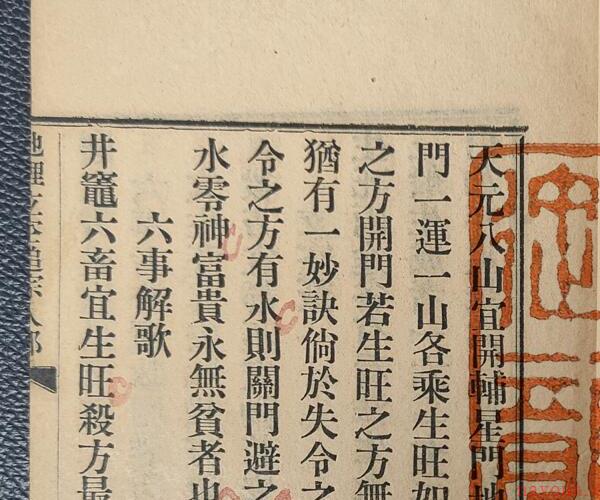 天元八山宜開輔星門地
門一運一山各乘生旺如
之方開門若生旺之方無
猶有一妙訣倘於失令之
令之方有水則關門避之
水零神富貴永無貧者也
六事解歌
井竈六畜宜生旺殺方最
地理